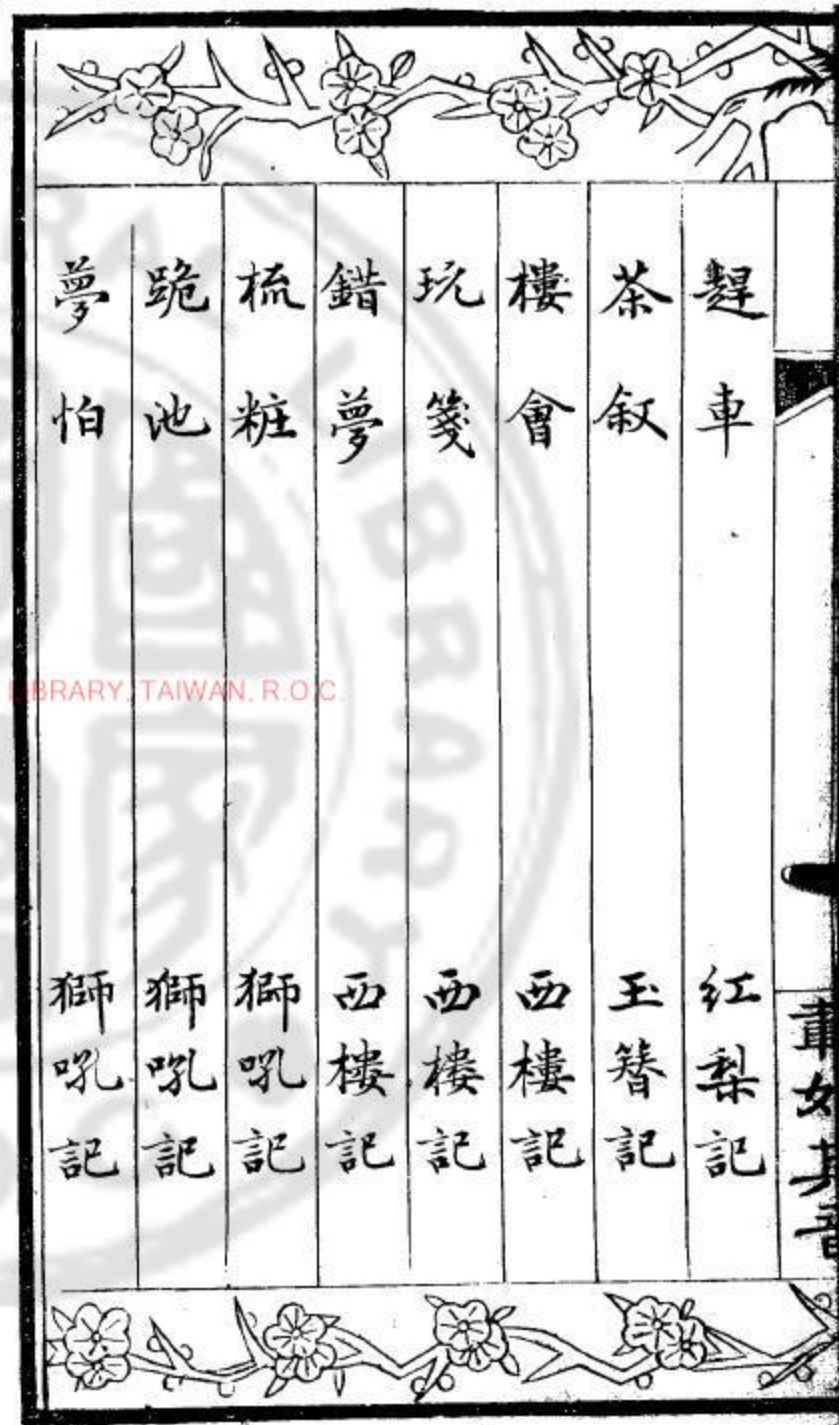 趕車 紅梨記
茶叙 玉簪記
樓會 西樓記
玩箋 西樓記
錯夢 西樓記
梳粧 獅吼記
跪池 獅吼記
夢怕 獅吼記
LIBRARY, TAIWAN, R.O.C.